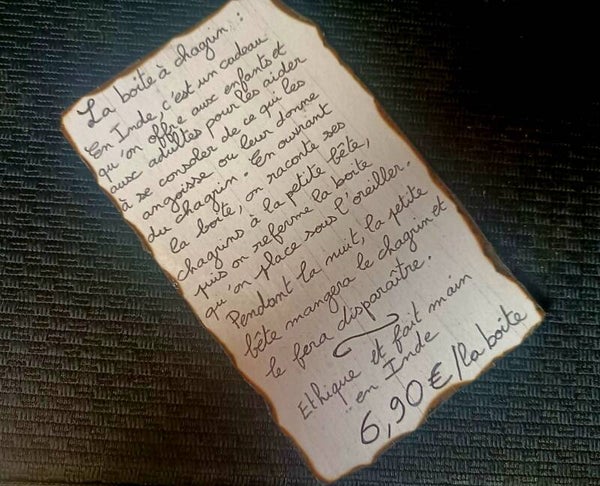 La boîte à chagrin :
En Inde, c'est un cadeau
qu'on offre aux enfants et
aux adultes pour les aider
à se consoler de ce qui les
angoisse ou leur donne
du chagrin. En ouvrant
la boîte, on raconte ses
chagrins à la petite bête,
puis on referme la boîte
qu'on place sous l'oreiller.
Pendant la nuit, la petite
bête mangera le chagrin et
le fera disparaître.
Ethique et fait main
en Inde
6,90 €/la boite